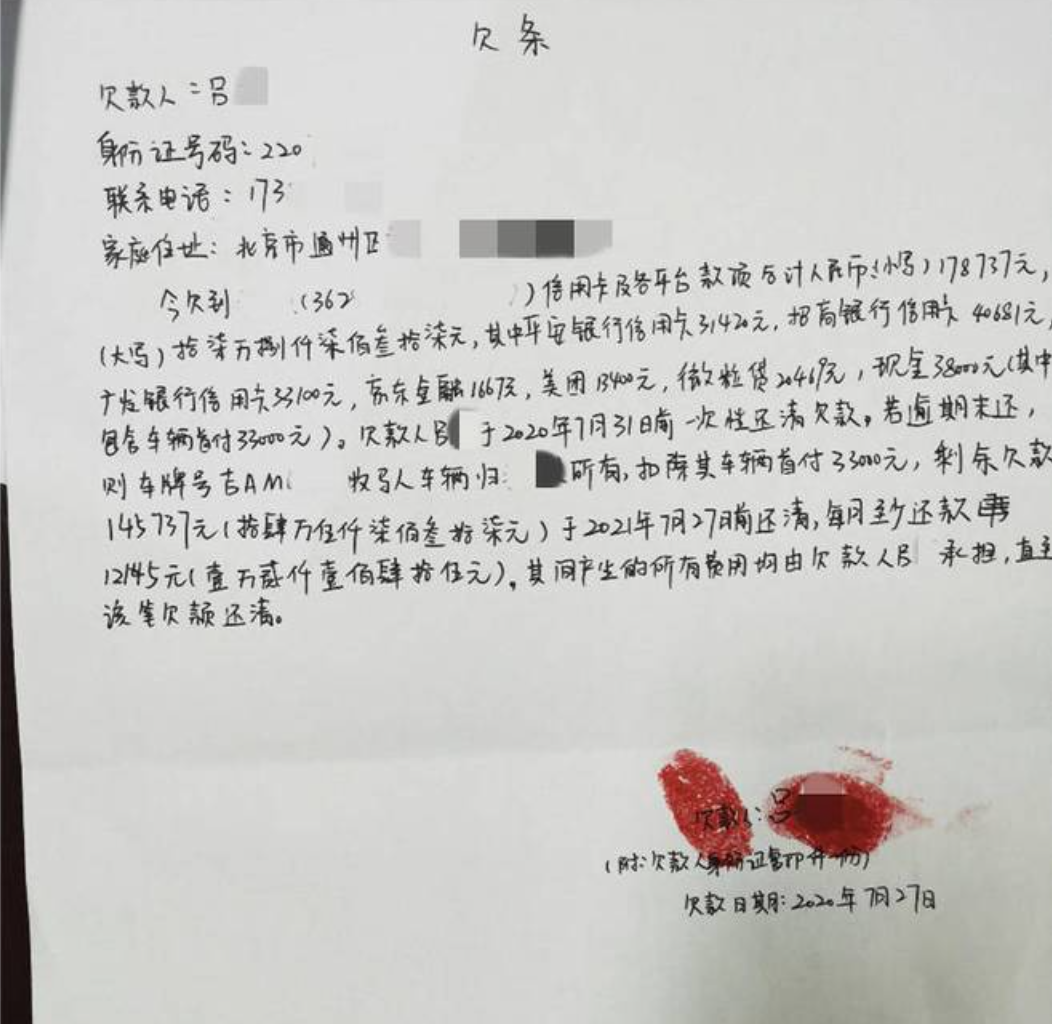 欠条
欠款人：吕
身份证号码：220
联系电话：173
家庭住址：北京市通州区
今欠到 (362 )信用卡及各平台款项合计人民币(小写)178737元，
(大写)拾柒万捌仟柒佰叁拾柒元，其中平安银行信用卡31420元，招商银行信用卡40681元，
广发银行信用卡33100元，京东金融1667元，美团13400元，微粒贷20469元，现金38000元(其中
包含车辆首付33000元)。欠款人吕 于2020年7月31日前一次性还清欠款。若逾期未还，
则车牌号吉AM 牧马人车辆归 所有，扣除其车辆首付33000元，剩余欠款
145737元(拾肆万伍仟柒佰叁拾柒元)于2021年7月27日前还清，每月至少还款
12145元(壹万贰仟壹佰肆拾伍元)。其间产生的所有费用均由欠款人吕 承担，直至
该笔欠款还清。
欠款人：吕
(附：欠款人身份证复印件一份)
欠款日期：2020年7月27日